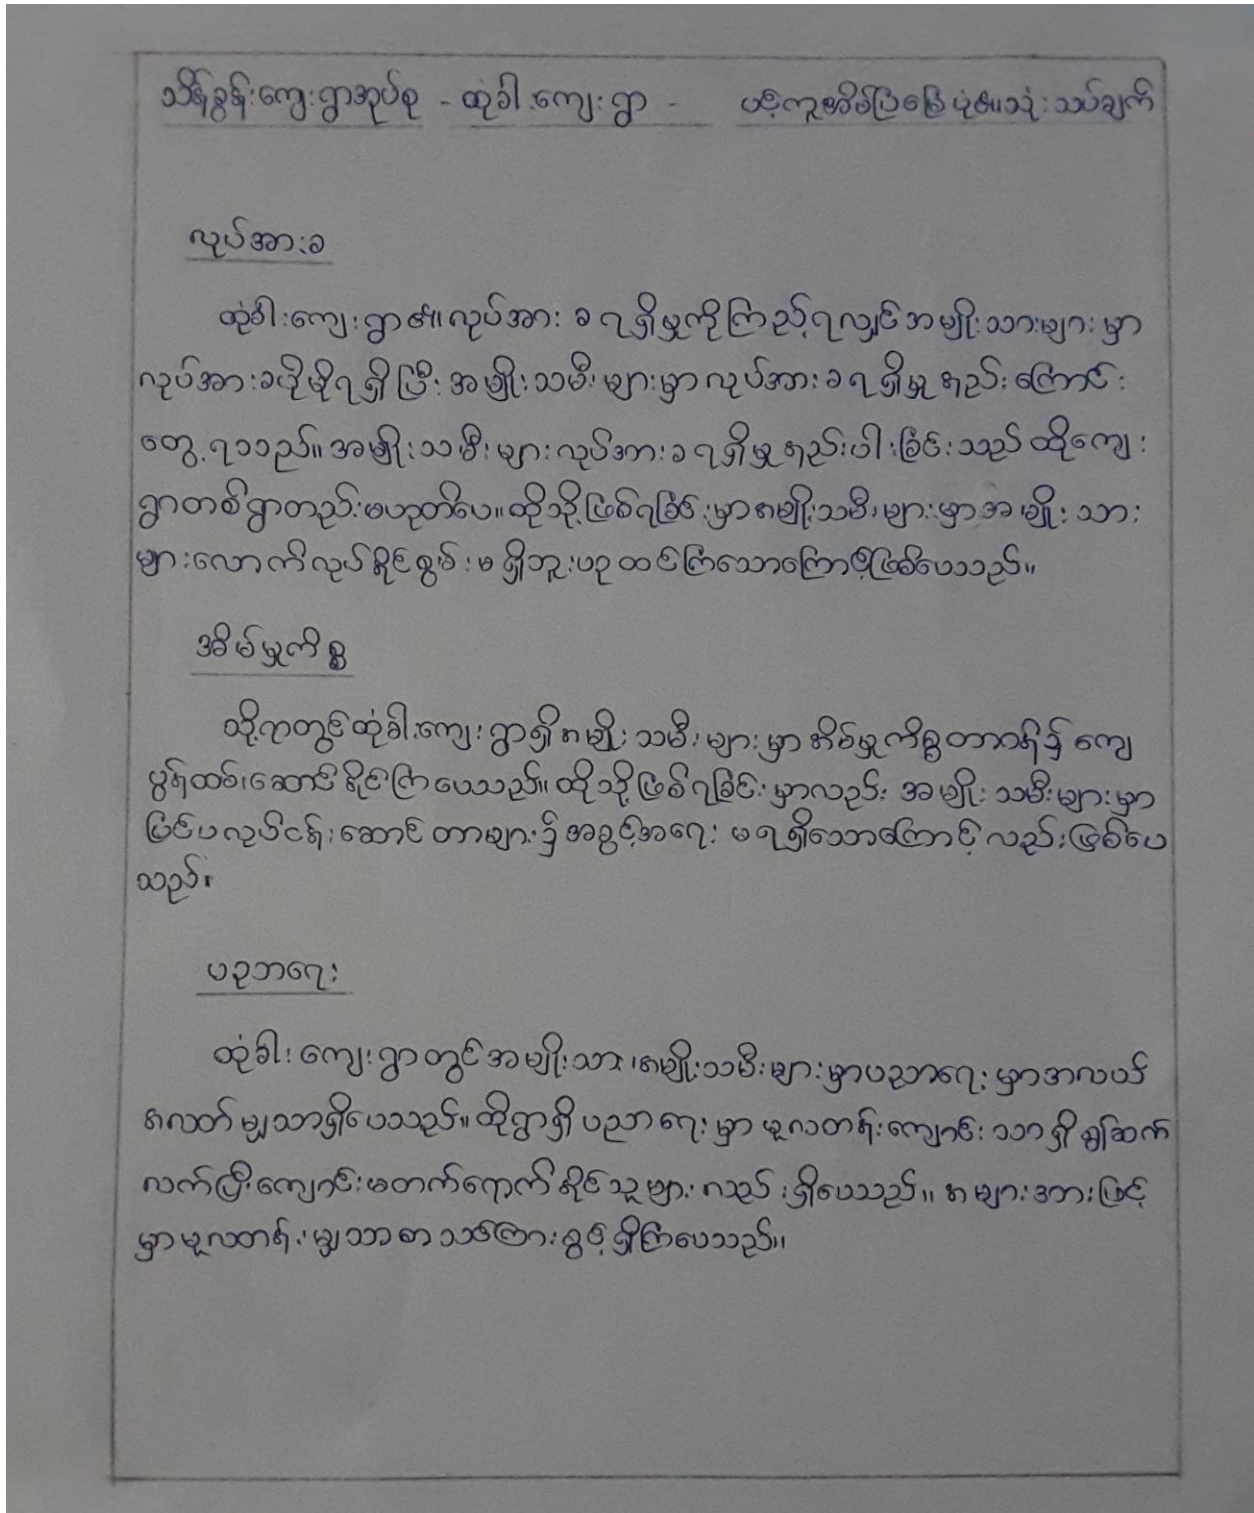 သိန်ခွန်းကျေးရွာအုပ်စု - ထုံခါးကျေးရွာ - ပင့်ကူအိမ်ပြမြေပုံ၏သုံးသပ်ချက်
လုပ်အားခ
ထုံခါးကျေးရွာ၏လုပ်အားခရရှိမှုကိုကြည့်ရလျှင်အမျိုးသားများမှာ
လုပ်အားခပိုမိုရရှိပြီးအမျိုးသမီးများမှာလုပ်အားခရရှိမှုနည်းကြောင်း
တွေ့ရသည်။အမျိုးသမီးများလုပ်အားခရရှိမှုနည်းပါးခြင်းသည်ထိုကျေး
ရွာတစ်ရွာတည်းမဟုတ်ပေ။ထိုသို့ဖြစ်ရခြင်းမှာအမျိုးသမီးများမှာအမျိုးသား
များလောက်လုပ်နိုင်စွမ်းမရှိဘူးဟုထင်ကြသောကြောင့်ဖြစ်ပေသည်။
အိမ်မှုကိစ္စ
သို့ရာတွင်ထုံခါးကျေးရွာရှိအမျိုးသမီးများမှာအိမ်မှုကိစ္စတာဝန်၌ကျေ
ပွန်ထမ်းဆောင်နိုင်ကြပေသည်။ထိုသို့ဖြစ်ရခြင်းမှာလည်းအမျိုးသမီးများမှာ
ပြင်ပလုပ်ငန်းဆောင်တာများ၌အခွင့်အရေးမရရှိသောကြောင့်လည်းဖြစ်ပေ
သည်။
ပညာရေး
ထုံခါးကျေးရွာတွင်အမျိုးသား၊အမျိုးသမီးများမှာပညာရေးမှာအလယ်
အလတ်မျှသာရှိပေသည်။ထိုရွာရှိပညာရေးမှာမူလတန်းကျောင်းသာရှိ၍ဆက်
လက်ပြီးကျောင်းမတက်ရောက်နိုင်သူများလည်းရှိပေသည်။အများအားဖြင့်
မှာမူလတန်းမျှသာစာသင်ကြားခွင့်ရှိကြပေသည်။